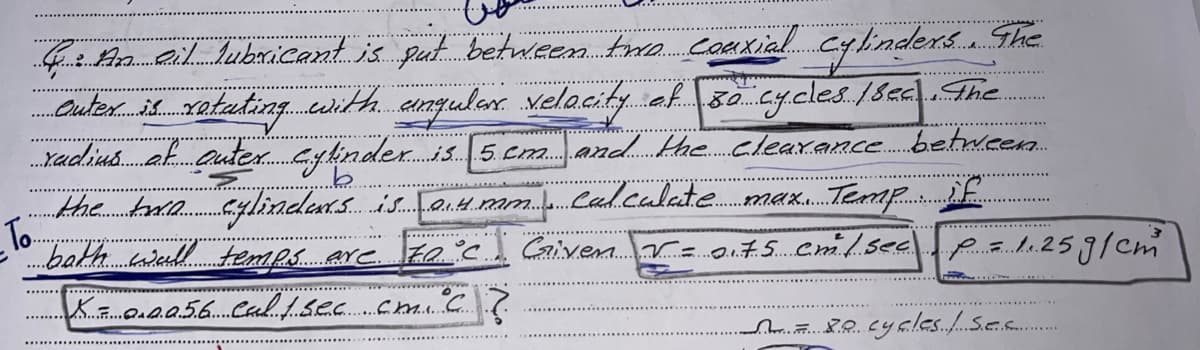 Q: An oil lubricant is put between two coaxial cylinders. The
outer is rotating with angular velocity of 80 cycles/sec. The
radius of outer cylinder is 5 cm and the clearance between
b
the two cylinders is 0.4 mm. Calculate max. Temp. if
To
both wall temps are 70 °C. Given ν = 0.75 cm²/sec, ρ = 1.25 g/cm³
K = 0.0056 cal/sec.cm.°C ?
Ω = 80 cycles/sec